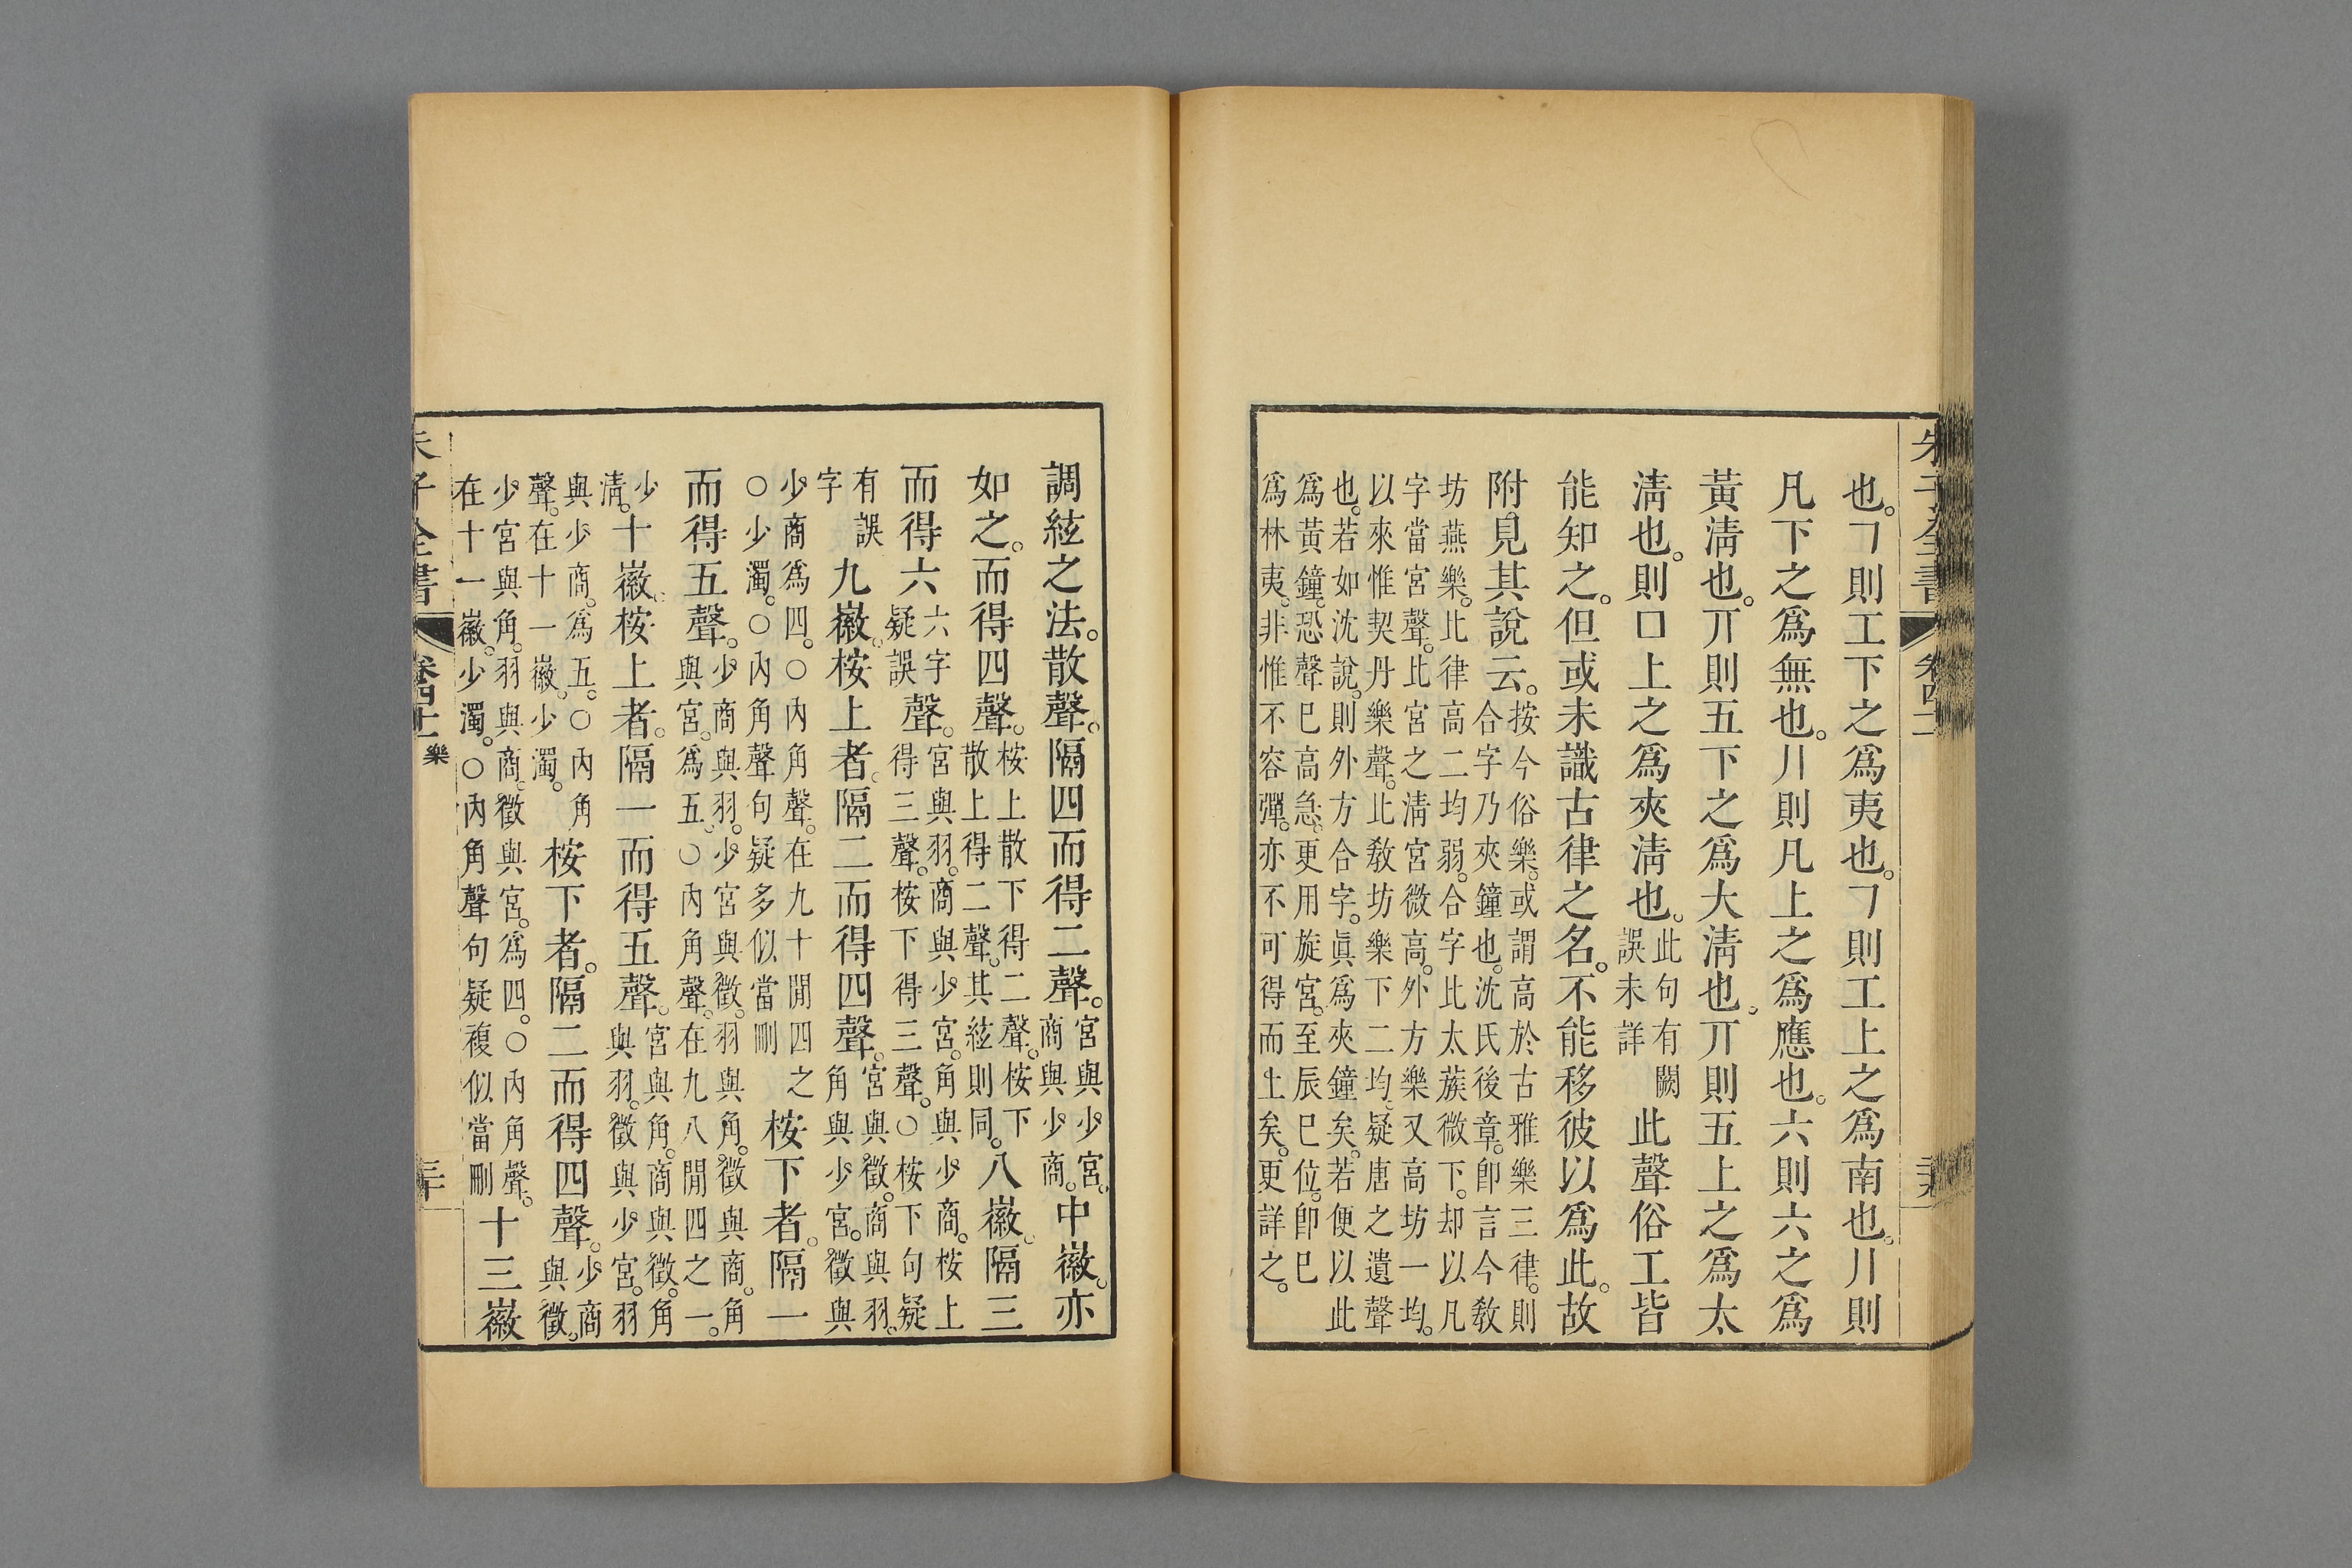 也。㇕則工下之爲夷也。㇕則工上之爲南也。〢則
凡下之爲無也。〢則凡上之爲應也。六則六之爲
黃淸也。丌則五下之爲大淸也。丌則五上之爲太
淸也。則口上之爲夾淸也。此句有闕誤未詳此聲俗工皆
能知之。但或未識古律之名。不能移彼以爲此。故
附見其說云。按今俗樂。或謂高於古雅樂三律。則合字乃夾鐘也。沈氏後章。卽言今敎
坊燕樂。比律高二均弱。合字比太蔟微下。却以凡
字當宮聲。比宮之淸宮微高。外方樂又高坊一均。
以來惟契丹樂聲。比敎坊樂下二均。疑唐之遺聲
也。若如沈說。則外方合字。眞爲夾鐘矣。若便以此
爲黃鐘。恐聲巳高急。更用旋宮。至辰巳位。卽巳
爲林夷。非惟不容彈。亦不可得而上矣。更詳之。
調絃之法。散聲。隔四而得二聲。宮與少宮。商與少商。中徽。亦
如之。而得四聲。桉上散下得二聲。桉下散上得二聲。其絃則同。八徽。隔三
而得六六字疑誤聲。宮與羽。商與少宮。角與少商。桉上得三聲。桉下得三聲。○桉下句疑
有誤字九徽。桉上者。隔二而得四聲。宮與徵。商與羽。角與少宮。徵與
少商爲四。○內角聲。在九十閒四之
○少濁。○內角聲句疑多似當刪桉下者。隔一
而得五聲。少商與羽。少宮與徵。羽與角。徵與商。角與宮。爲五。○內角聲。在九八閒四之一。
少淸。十徽。桉上者。隔一而得五聲。宮與角。商與徵。角與羽。徵與少宮。羽
與少商。爲五。○內角聲。在十一徽。少濁。桉下者。隔二而得四聲。少商與徵。
少宮與角。羽與商。徵與宮。爲四。○內角聲。
在十一徽。少濁。○內角聲句疑複似當刪十三徽
朱子全書
卷四十一
樂
三十